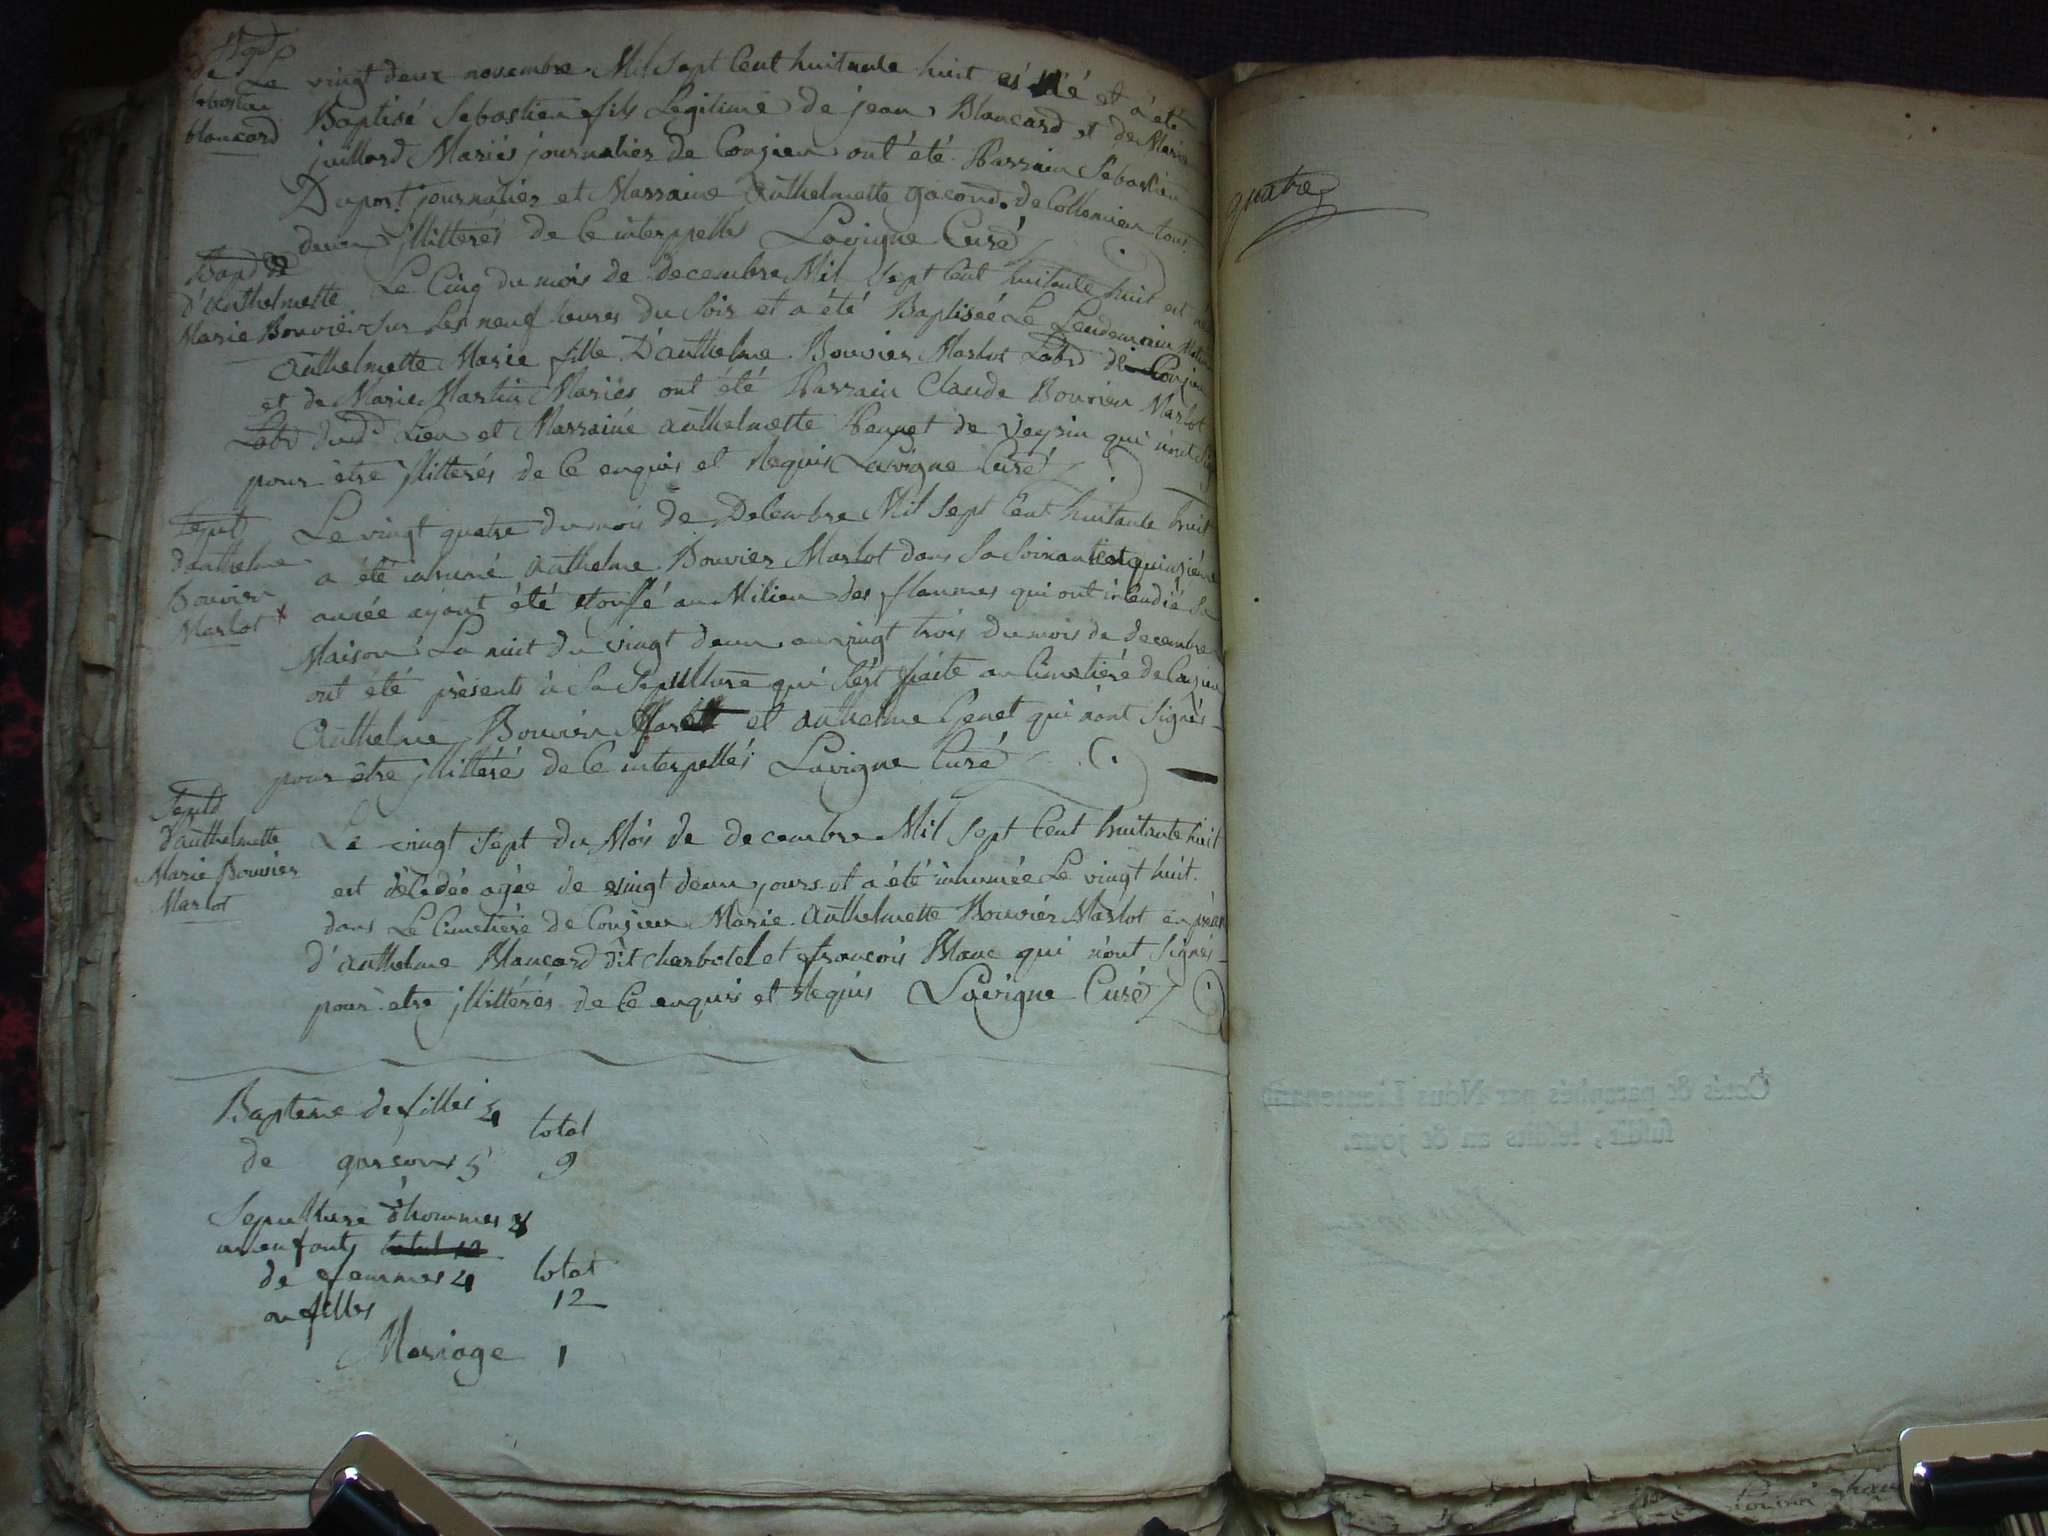 Bapt
de
Sebastien
blancard
Le vingt deux novembre Mil Sept Cent huitante huit es né et a été
Baptisé Sebastien fils Legitime de jean Blancard et de Marie
juillard Mariés journalier de Conzieu ont été Parrain Sebastien
Duport journalier et Marraine Anthelmette gacond de Collomieu tous
deux jllitterés de Ce interppellés Lavigne Curé
Bap
d'anthelmette
Marie Bouvier
Le Cinq du mois de decembre Mil Sept Cent huitante huit est née
Sur Les neuf heures du Soir et a été Baptisée Le Lendemain
Anthelmette Marie fille D'anthelme Bouvier Marlot Labr de Conzieu
et de Marie Martin Mariés ont été Parrain Claude Bouvier Marlot
Labr dud. Lieu et Marraine anthelmette Pennet de Veyrin qui n'ont
pour être jllitterés de Ce enquis et Requis Lavigne Curé
Sepult
d'anthelme
Bouvier
Marlot x
Le vingt quatre du mois de Decembre Mil Sept Cent huitante huit
a été inhumé anthelme Bouvier Marlot dans Sa Soixante et quinzième
année ayant été etouffé au Milieu des flammes qui ont incendié Sa
Maison La nuit du vingt deux au vingt trois du mois de decembre
ont été présents à Sa Sepulture qui S'est faite au Cimetière de Conzieu
Anthelme Bouvier Marlot et anthelme Genet qui n'ont Signés
pour être jllitérés de Ce interpellés Lavigne Curé
Sepult
d'anthelmette
Marie Bouvier
Marlot
Le vingt Sept du Mois de decembre Mil Sept Cent huitante huit
est décédée agée de vingt deux jours et a été inhumée Le vingt huit
dans Le Cimetière de Conzieu Marie Anthelmette Bouvier Marlot
d'anthelme Blancard dit charbotel et francois Blanc qui n'ont Signés
pour etre jllittérés de Ce enquis et Requis Lavigne Curé
Bapteme de filles 4
total
de garcons 5 9
Sepulture d'hommes 8
ou enfants total 12
de femmes 4 total
ou filles 12
Mariage 1
quatre
Cotés & paraphés par Nous Lieutenant
susdit, lesdits an & jour.